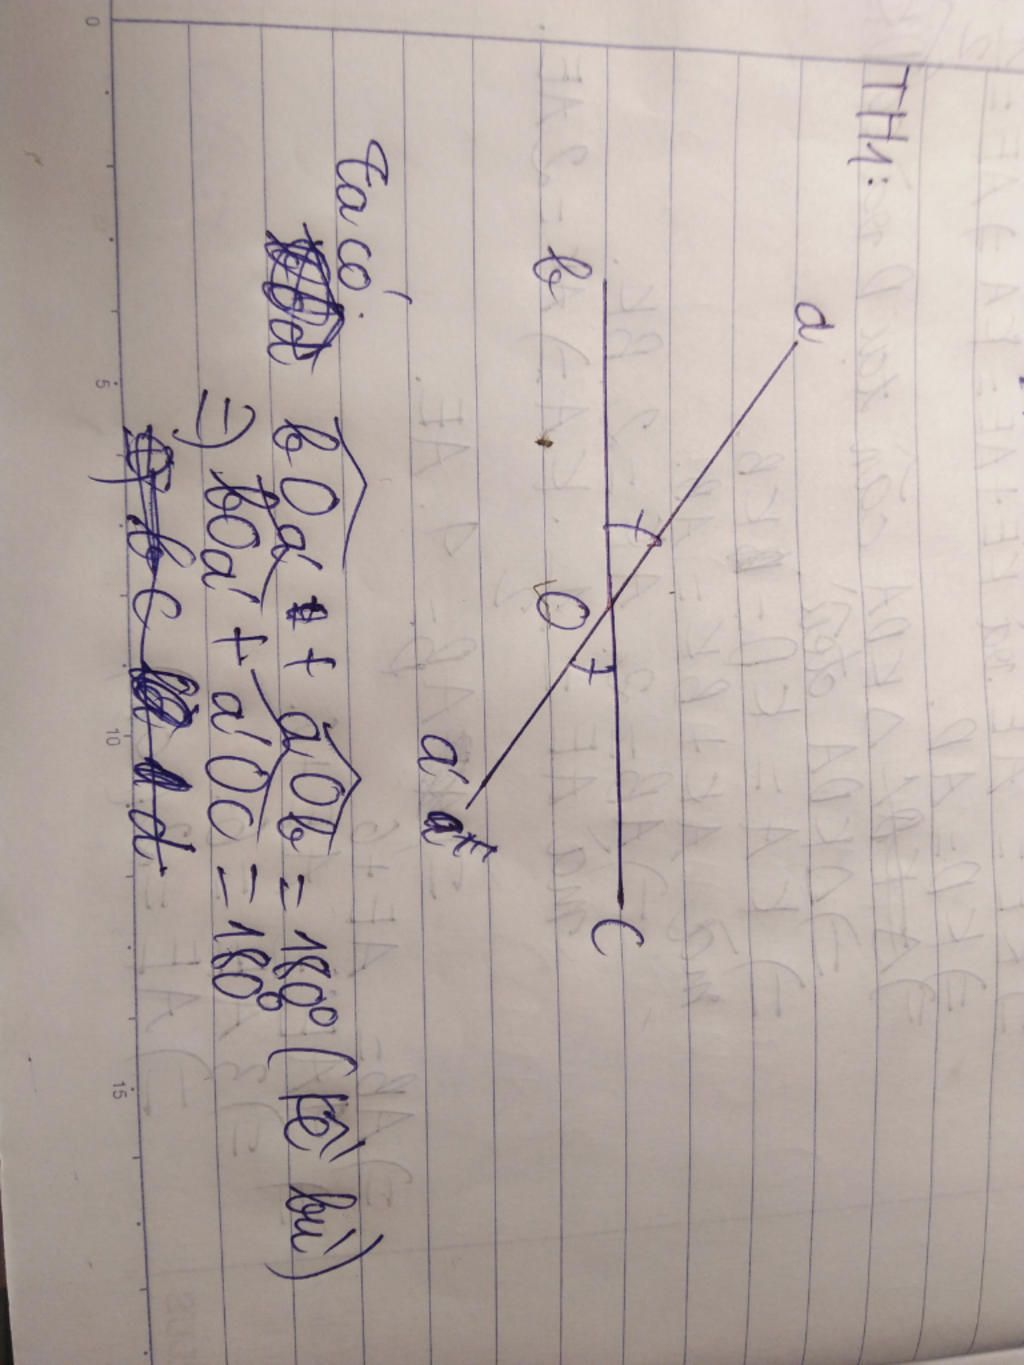 TH1:
a
b
O
C
a'
Ta có:
bOa' + aOb = 180° (kề bù)
=> bOa' + a'Oc = 180°
=> bC
d
0
5
10
15